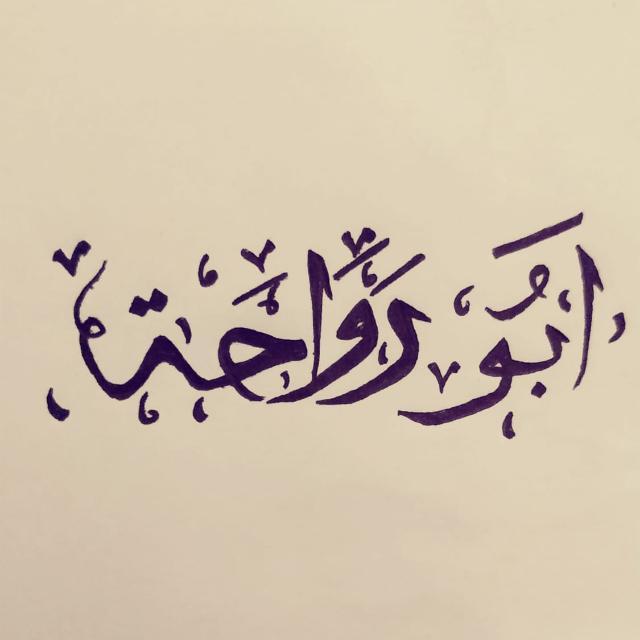 أَبُو رَوَّاحَة